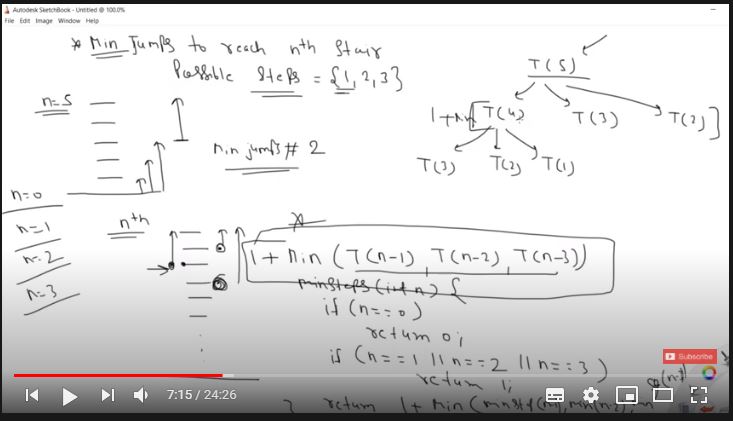 Autodesk SketchBook - Untitled @ 100.0%
File Edit Image Window Help
* Min Jumps to reach nth stair
Possible Steps = {1, 2, 3}
n=5
min jumps # 2
n=0
n=1
n=2
n=3
T(5)
1+Min[T(4) T(3) T(2)]
T(3) T(2) T(1)
nth
1 + Min (T(n-1) T(n-2) T(n-3))
minsteps(int n) {
if (n==0)
return 0;
if (n==1 || n==2 || n==3)
return 1;
return 1+ Min (
Subscribe
7:15 / 24:26